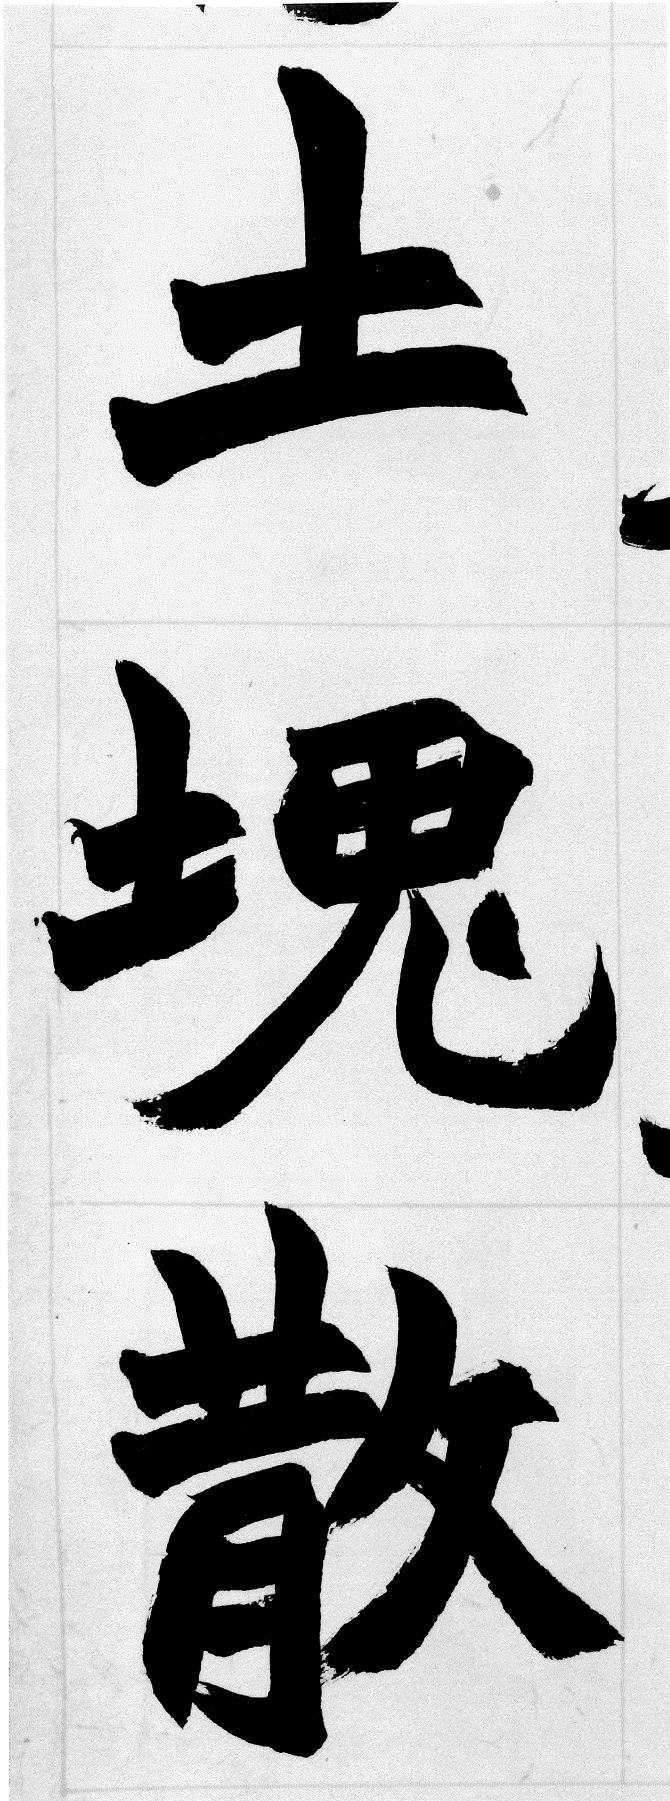 土塊散